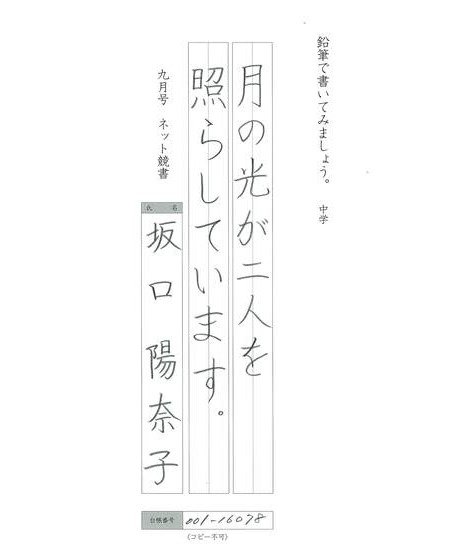 鉛筆で書いてみましょう。 中学
月の光が二人を
照らしています。
九月号 ネット競書
氏 名
坂口陽奈子
台帳番号 001-16078
(コピー不可)